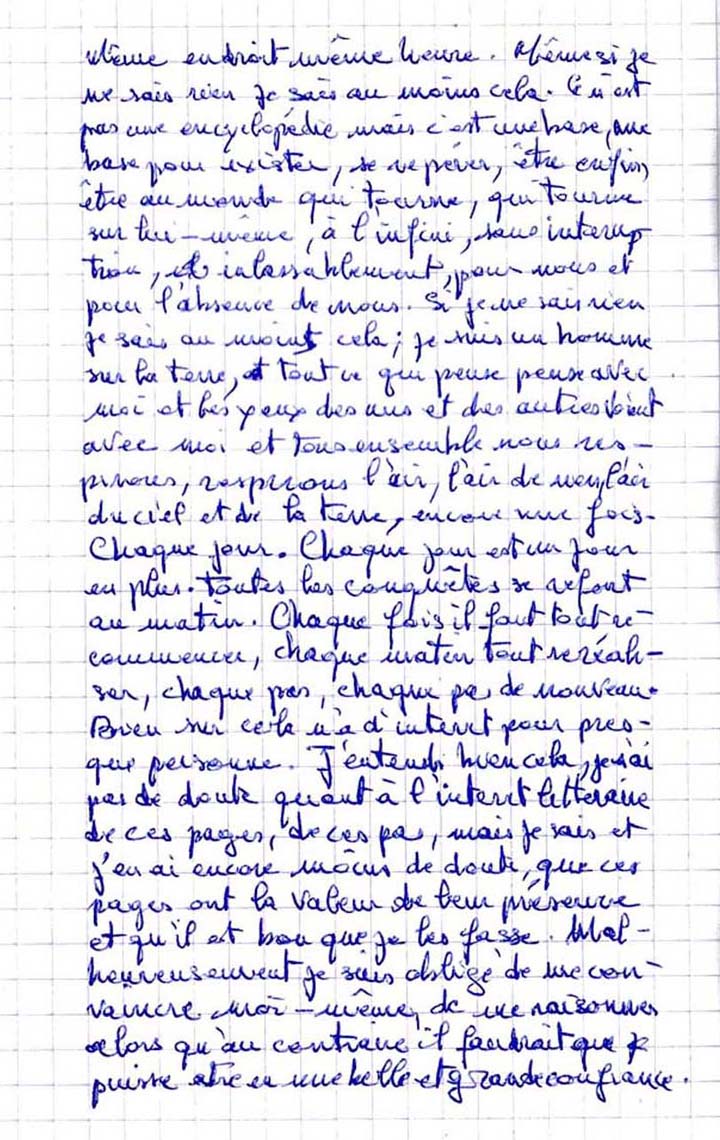 Même endroit même heure. Même si je
ne sais rien je sais au moins cela. Ce n'est
pas une encyclopédie mais c'est une base, une
base pour exister, se repérer, être enfin,
être au monde qui tourne, qui tourne
sur lui-même, à l'infini, sans interup
tion, et inlassablement, pour nous et
pour l'absence de nous. Si je ne sais rien
je sais au moins cela; je suis un homme
sur la terre, et tout ce qui pense pense avec
moi et les yeux des uns et des autres voient
avec moi et tous ensemble nous res-
pirons, respirons l'air, l'air de rien, l'air
du ciel et de la terre, encore une fois.
Chaque jour. Chaque jour est un jour
en plus. Toutes les conquêtes se refont
au matin. Chaque fois il faut tout re-
commencer, chaque matin tout reréali-
ser, chaque pas, chaque pas de nouveau.
Bien sur cela n'a d'interet pour pres-
que personne. J'entends bien cela, je n'ai
pas de doute quant à l'interet litteraire
de ces pages, de ces pas, mais je sais et
j'en ai encore moins de doute, que ces
pages ont la valeur de leur présence
et qu'il est bon que je les fasse. Mal-
heureusement je suis obligé de me con-
vaincre moi-même, de me raisonner
alors qu'au contraire il faudrait que je
puisse etre en une belle et grande confiance.